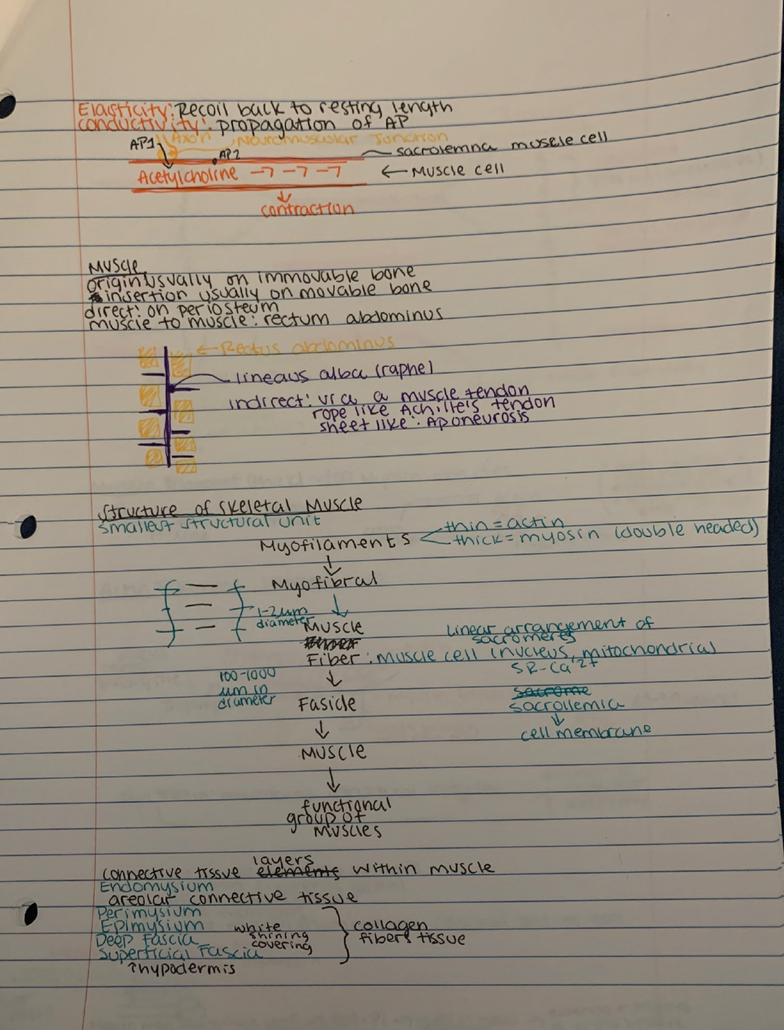 Elasticity: Recoil back to resting length
conductivity: propagation of AP
AP1 Axon Neuromuscular Junction
AP2 sacrolemna muscle cell
Acetylcholine → → → ← Muscle cell
↓
contraction
Muscle
origin usually on immovable bone
insertion usually on movable bone
direct: on periosteum
muscle to muscle: rectum abdominus
← Rectus abdominus
lineaus alba (raphe)
indirect: via a muscle tendon
rope like Achille's tendon
sheet like: Aponeurosis
Structure of Skeletal Muscle
smallest structural unit
thin = actin
Myofilaments
thick = myosin (double headed)
↓
Myofibral
↓
1-2um
diameter
Muscle
Linear arrangement of
sacromeres
Fiber: muscle cell (nucleus, mitochondrial
SR-Ca2+
100-1000
um in
diameter
↓
Fasicle
Sacrome
sacrollemia
↓
cell membrane
↓
Muscle
↓
functional
group of
Muscles
layers
connective tissue elements within muscle
Endomysium
areolar connective tissue
Perimysium
Epimysium
Deep Fascia
Superficial Fascia
white
shining
covering
collagen
fibers tissue
↑hypodermis